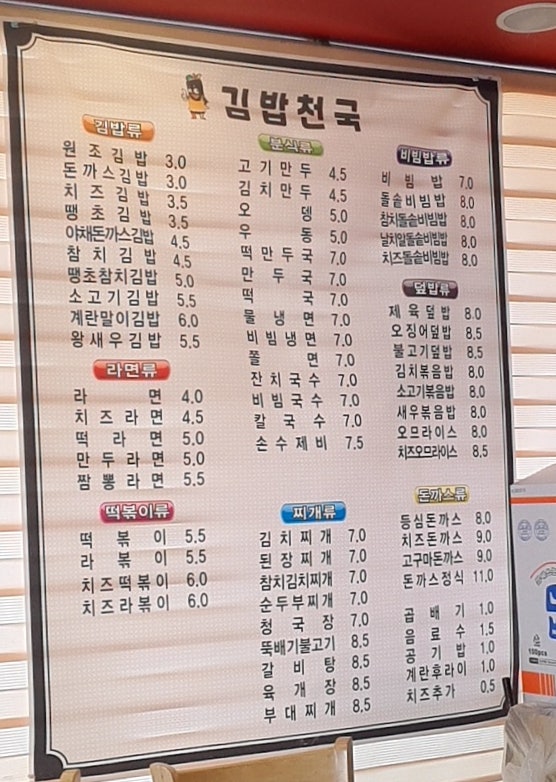 김밥천국
김밥류
원조김밥 3.0
돈까스김밥 3.0
치즈김밥 3.5
땡초김밥 3.5
야채돈까스김밥 4.5
참치김밥 4.5
땡초참치김밥 5.0
소고기김밥 5.5
계란말이김밥 6.0
왕새우김밥 5.5
라면류
라면 4.0
치즈라면 4.5
떡라면 5.0
만두라면 5.0
짬뽕라면 5.5
떡볶이류
떡볶이 5.5
라볶이 5.5
치즈떡볶이 6.0
치즈라볶이 6.0
분식류
고기만두 4.5
김치만두 4.5
오뎅 5.0
우동 5.0
떡만두국 7.0
만두국 7.0
떡국 7.0
물냉면 7.0
비빔냉면 7.0
쫄면 7.0
잔치국수 7.0
비빔국수 7.0
칼국수 7.0
손수제비 7.5
찌개류
김치찌개 7.0
된장찌개 7.0
참치김치찌개 7.0
순두부찌개 7.0
청국장 7.0
뚝배기불고기 8.5
갈비탕 8.5
육개장 8.5
부대찌개 8.5
비빔밥류
비빔밥 7.0
돌솥비빔밥 8.0
참치돌솥비빔밥 8.0
날치알돌솥비빔밥 8.0
치즈돌솥비빔밥 8.0
덮밥류
제육덮밥 8.0
오징어덮밥 8.5
불고기덮밥 8.5
김치볶음밥 8.0
소고기볶음밥 8.0
새우볶음밥 8.0
오므라이스 8.0
치즈오므라이스 8.5
돈까스류
등심돈까스 8.0
치즈돈까스 9.0
고구마돈까스 9.0
돈까스정식 11.0
곱배기 1.0
음료수 1.5
공기밥 1.0
계란후라이 1.0
치즈추가 0.5
100pcs